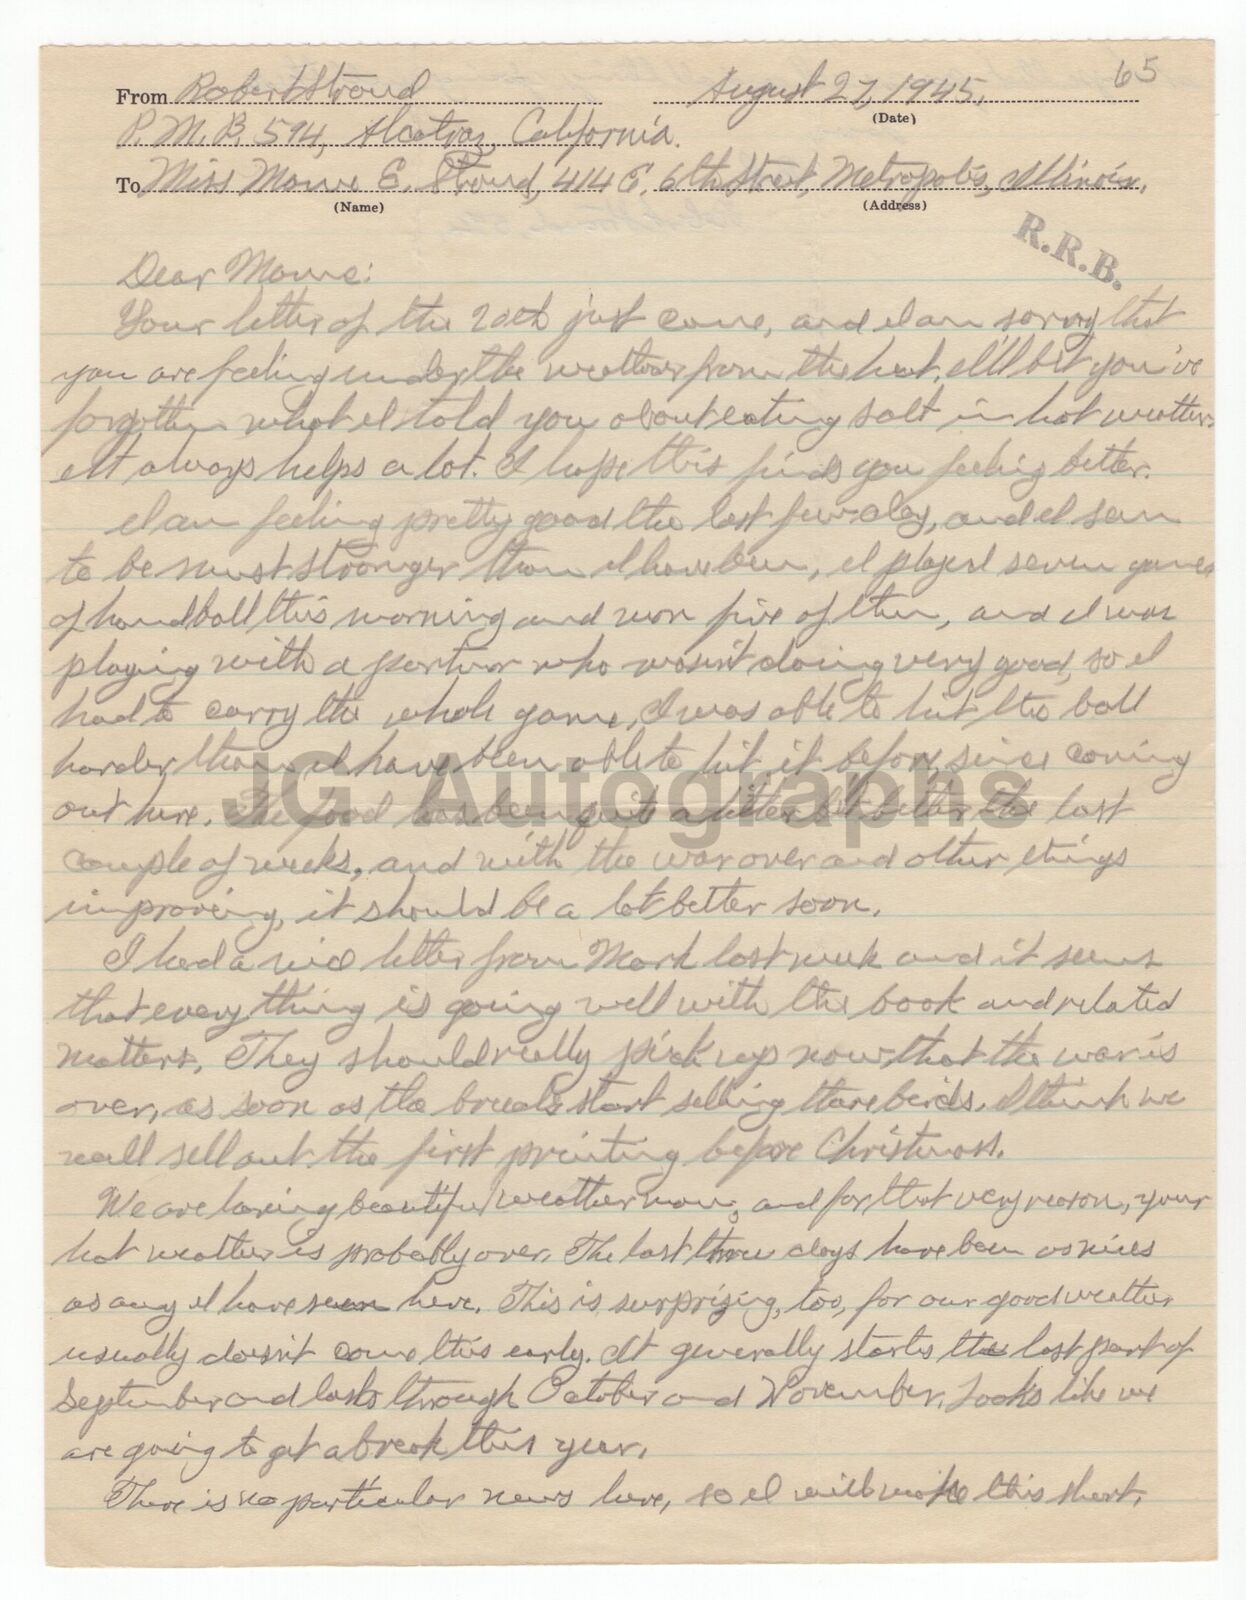 65
From Robert Stroud August 27, 1945.
(Date)
P.M.B. 594, Alcatraz, California.
To Miss Mame E. Stroud, 414 E. 6th Street, Metropolis, Illinois.
(Name) (Address)
R.R.B.
Dear Mame:
Your letter of the 20th just came, and I am sorry that
you are feeling under the weather from the heat. I'll bet you've
forgotten what I told you about eating salt in hot weather.
It always helps a lot. I hope this finds you feeling better.
I am feeling pretty good the last few day, and I seem
to be must stronger than I have been, I played seven games
of handball this morning and won five of them, and I was
playing with a partner who wasn't doing very good, so I
had to carry the whole game. I was able to hit the ball
harder than I have been able to hit it before since coming
out here. The food has been quite a bit better the last
couple of weeks, and with the war over and other things
improving, it should be a lot better soon.
JG Autographs
I had a nice letter from Mark last week and it seems
that every thing is going well with the book and related
matters. They should really pick up now that the war is
over, as soon as the breeders start selling there birds. I think we
will sell out the first printing before Christmass.
We are having beautiful weather now, and for that very reason, your
hot weather is probably over. The last three days have been as nices
as any I have seen here. This is surprizing, too, for our good weather
usually doesn't come this early. It generally starts the last part of
September and lasts through October and November. Looks like we
are going to get a break this year.
There is no particular news here, so I will make this short.